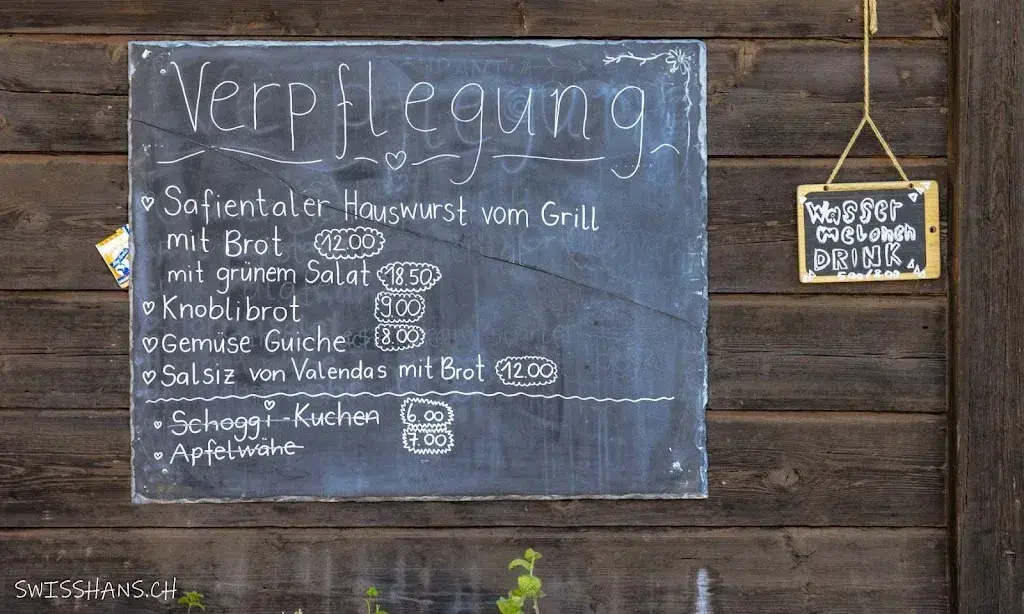 Verpflegung
Safientaler Hauswurst vom Grill
mit Brot 12.00
mit grünem Salat 18.50
Knoblibrot 9.00
Gemüse Guiche 8.00
Salsiz von Valendas mit Brot 12.00
Schoggi-Kuchen 6.00
Apfelwähe 7.00
Wasser
melonen
DRINK
SWISSHANS.CH